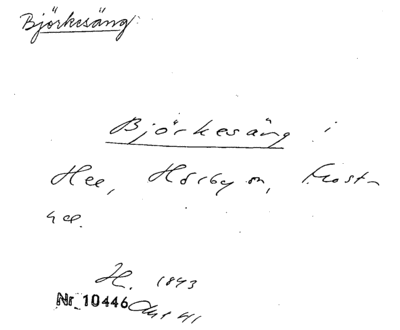 Björkesäng
Björkesäng i
Hee, Hörby sn, Frost-
hd.
H. 1843
Nr 10446 Akt 41